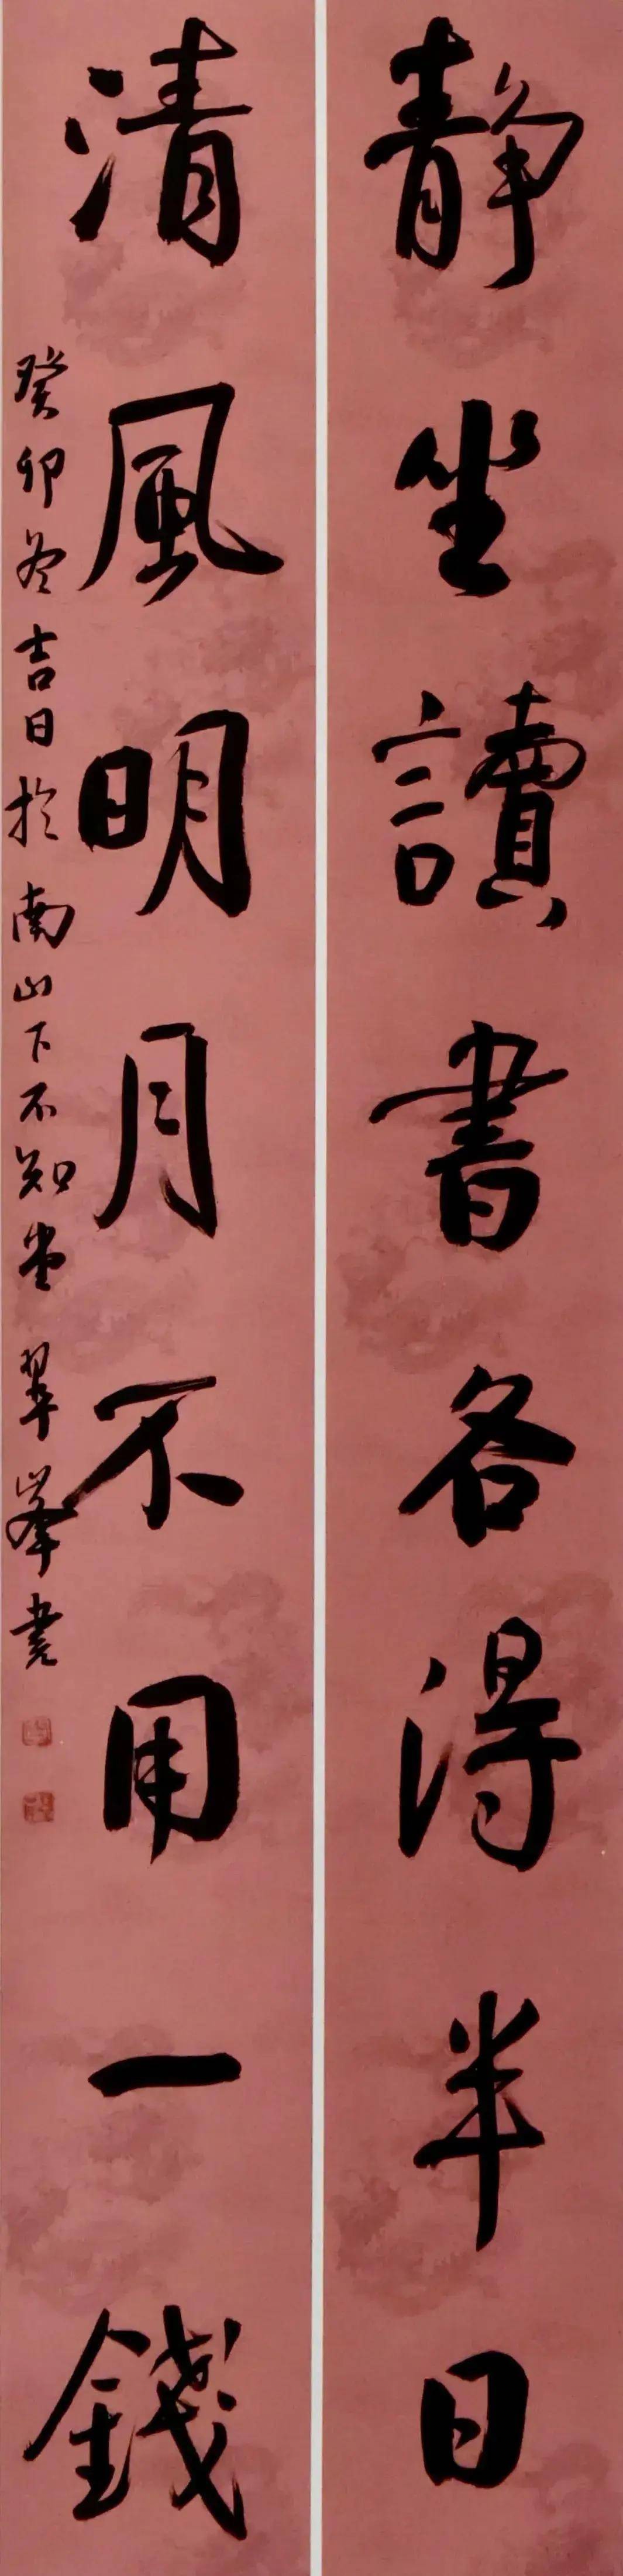 靜坐讀書各得半日
清風明月不用一錢
癸卯冬吉日於南山下不知堂翠峯書